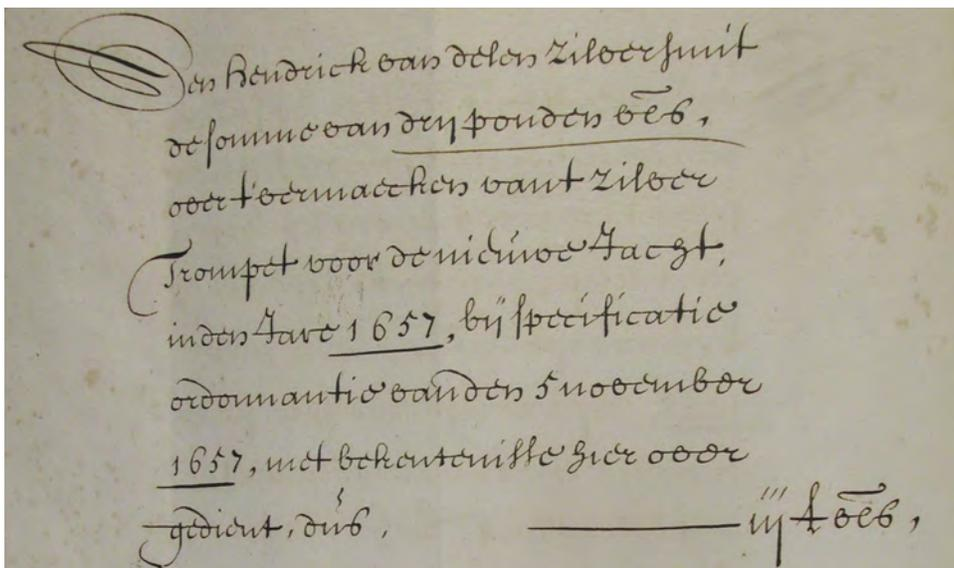 Den Hendrick van delen Zilversmit
de somme van drij ponden vls,
over t vermaecken vant Zilver
Trompet voor de nieuwe Jacht,
inden Jare 1657, bij specificatie
ordonnantie vanden 5 november
1657, met bekentenisse hier over
gedient, dus, iij £ vls,